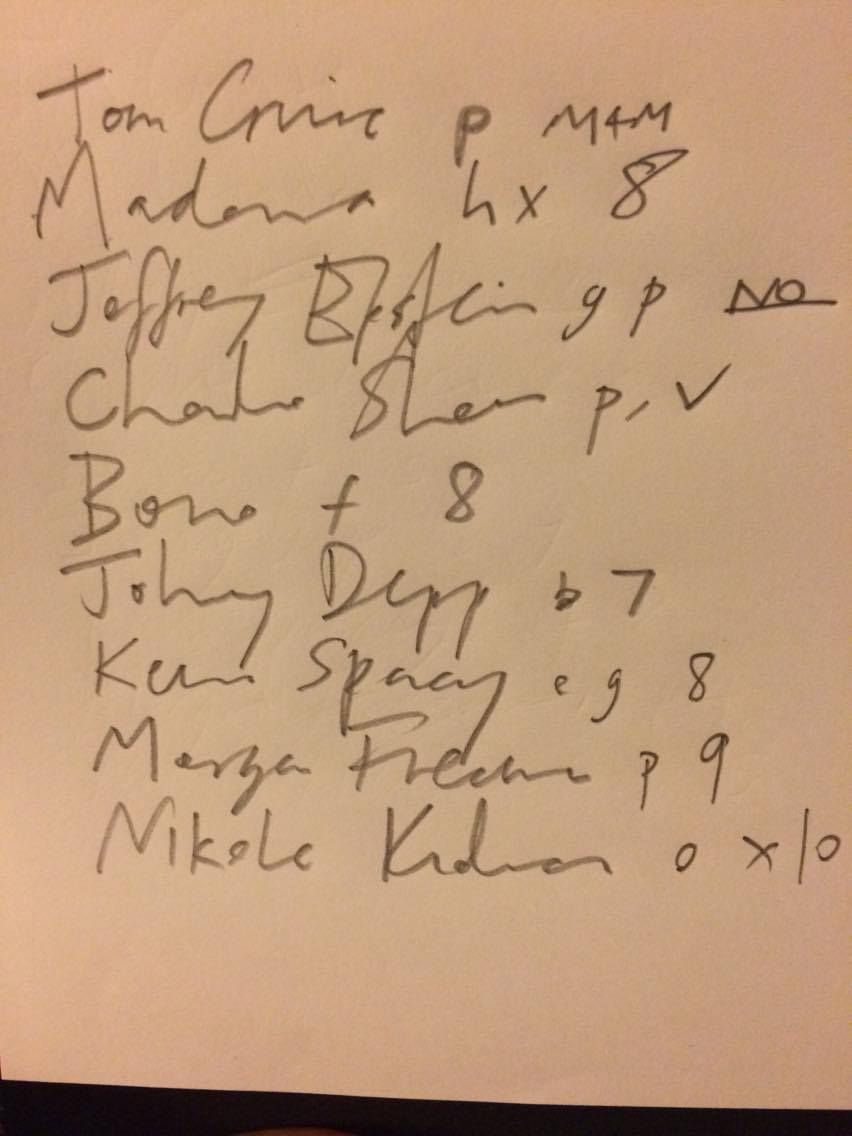 Tom Cruise p M+M
Madonna h x 8
Jeffrey Epstein g p NO
Charlie Sheen p, ✓
Bono f 8
Johny Depp b 7
Kevin Spacey e g 8
Morgan Freeman p 9
Nikole Kidman o x 10